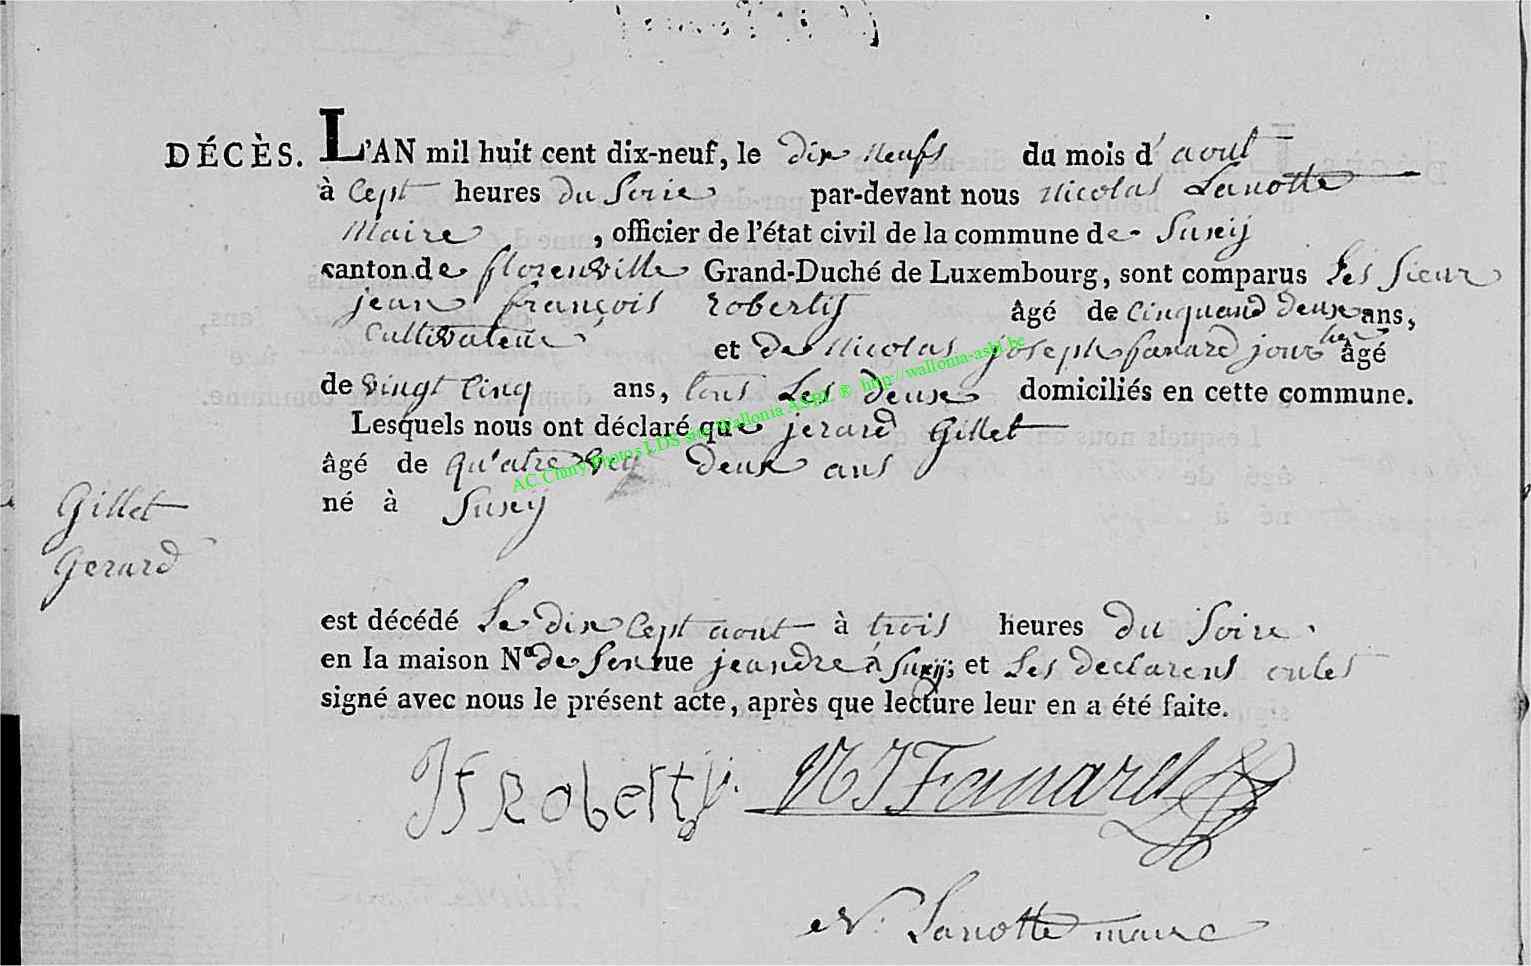 DÉCÈS. L'AN mil huit cent dix-neuf, le dix neufs du mois d'aout
à Cept heures du Soire par-devant nous Nicolas Lanotte
Maire , officier de l'état civil de la commune de Suxiy
canton de florenville Grand-Duché de Luxembourg, sont comparus Les Sieur
jean françois robertij âgé de Cinquand deux ans,
Cultivateur et de Nicolas joseph fanard jour lier âgé
de vingt Cinq ans, tous Les deux domiciliés en cette commune.
Lesquels nous ont déclaré que jerard Gillet
âgé de qu'atre deux ans
né à Suxiy
Gillet
Gerard
est décédé Le dix Cept aout à trois heures du Soire.
en la maison N° de Son rue jeandre à Suxij; et Les declarens
signé avec nous le présent acte, après que lecture leur en a été faite.
Jf Robertij. NJ Fanard
N. Lanotte maire
AC Chiny Photos LDS site Wallonia ASBL ® http://wallonia-asbl.be